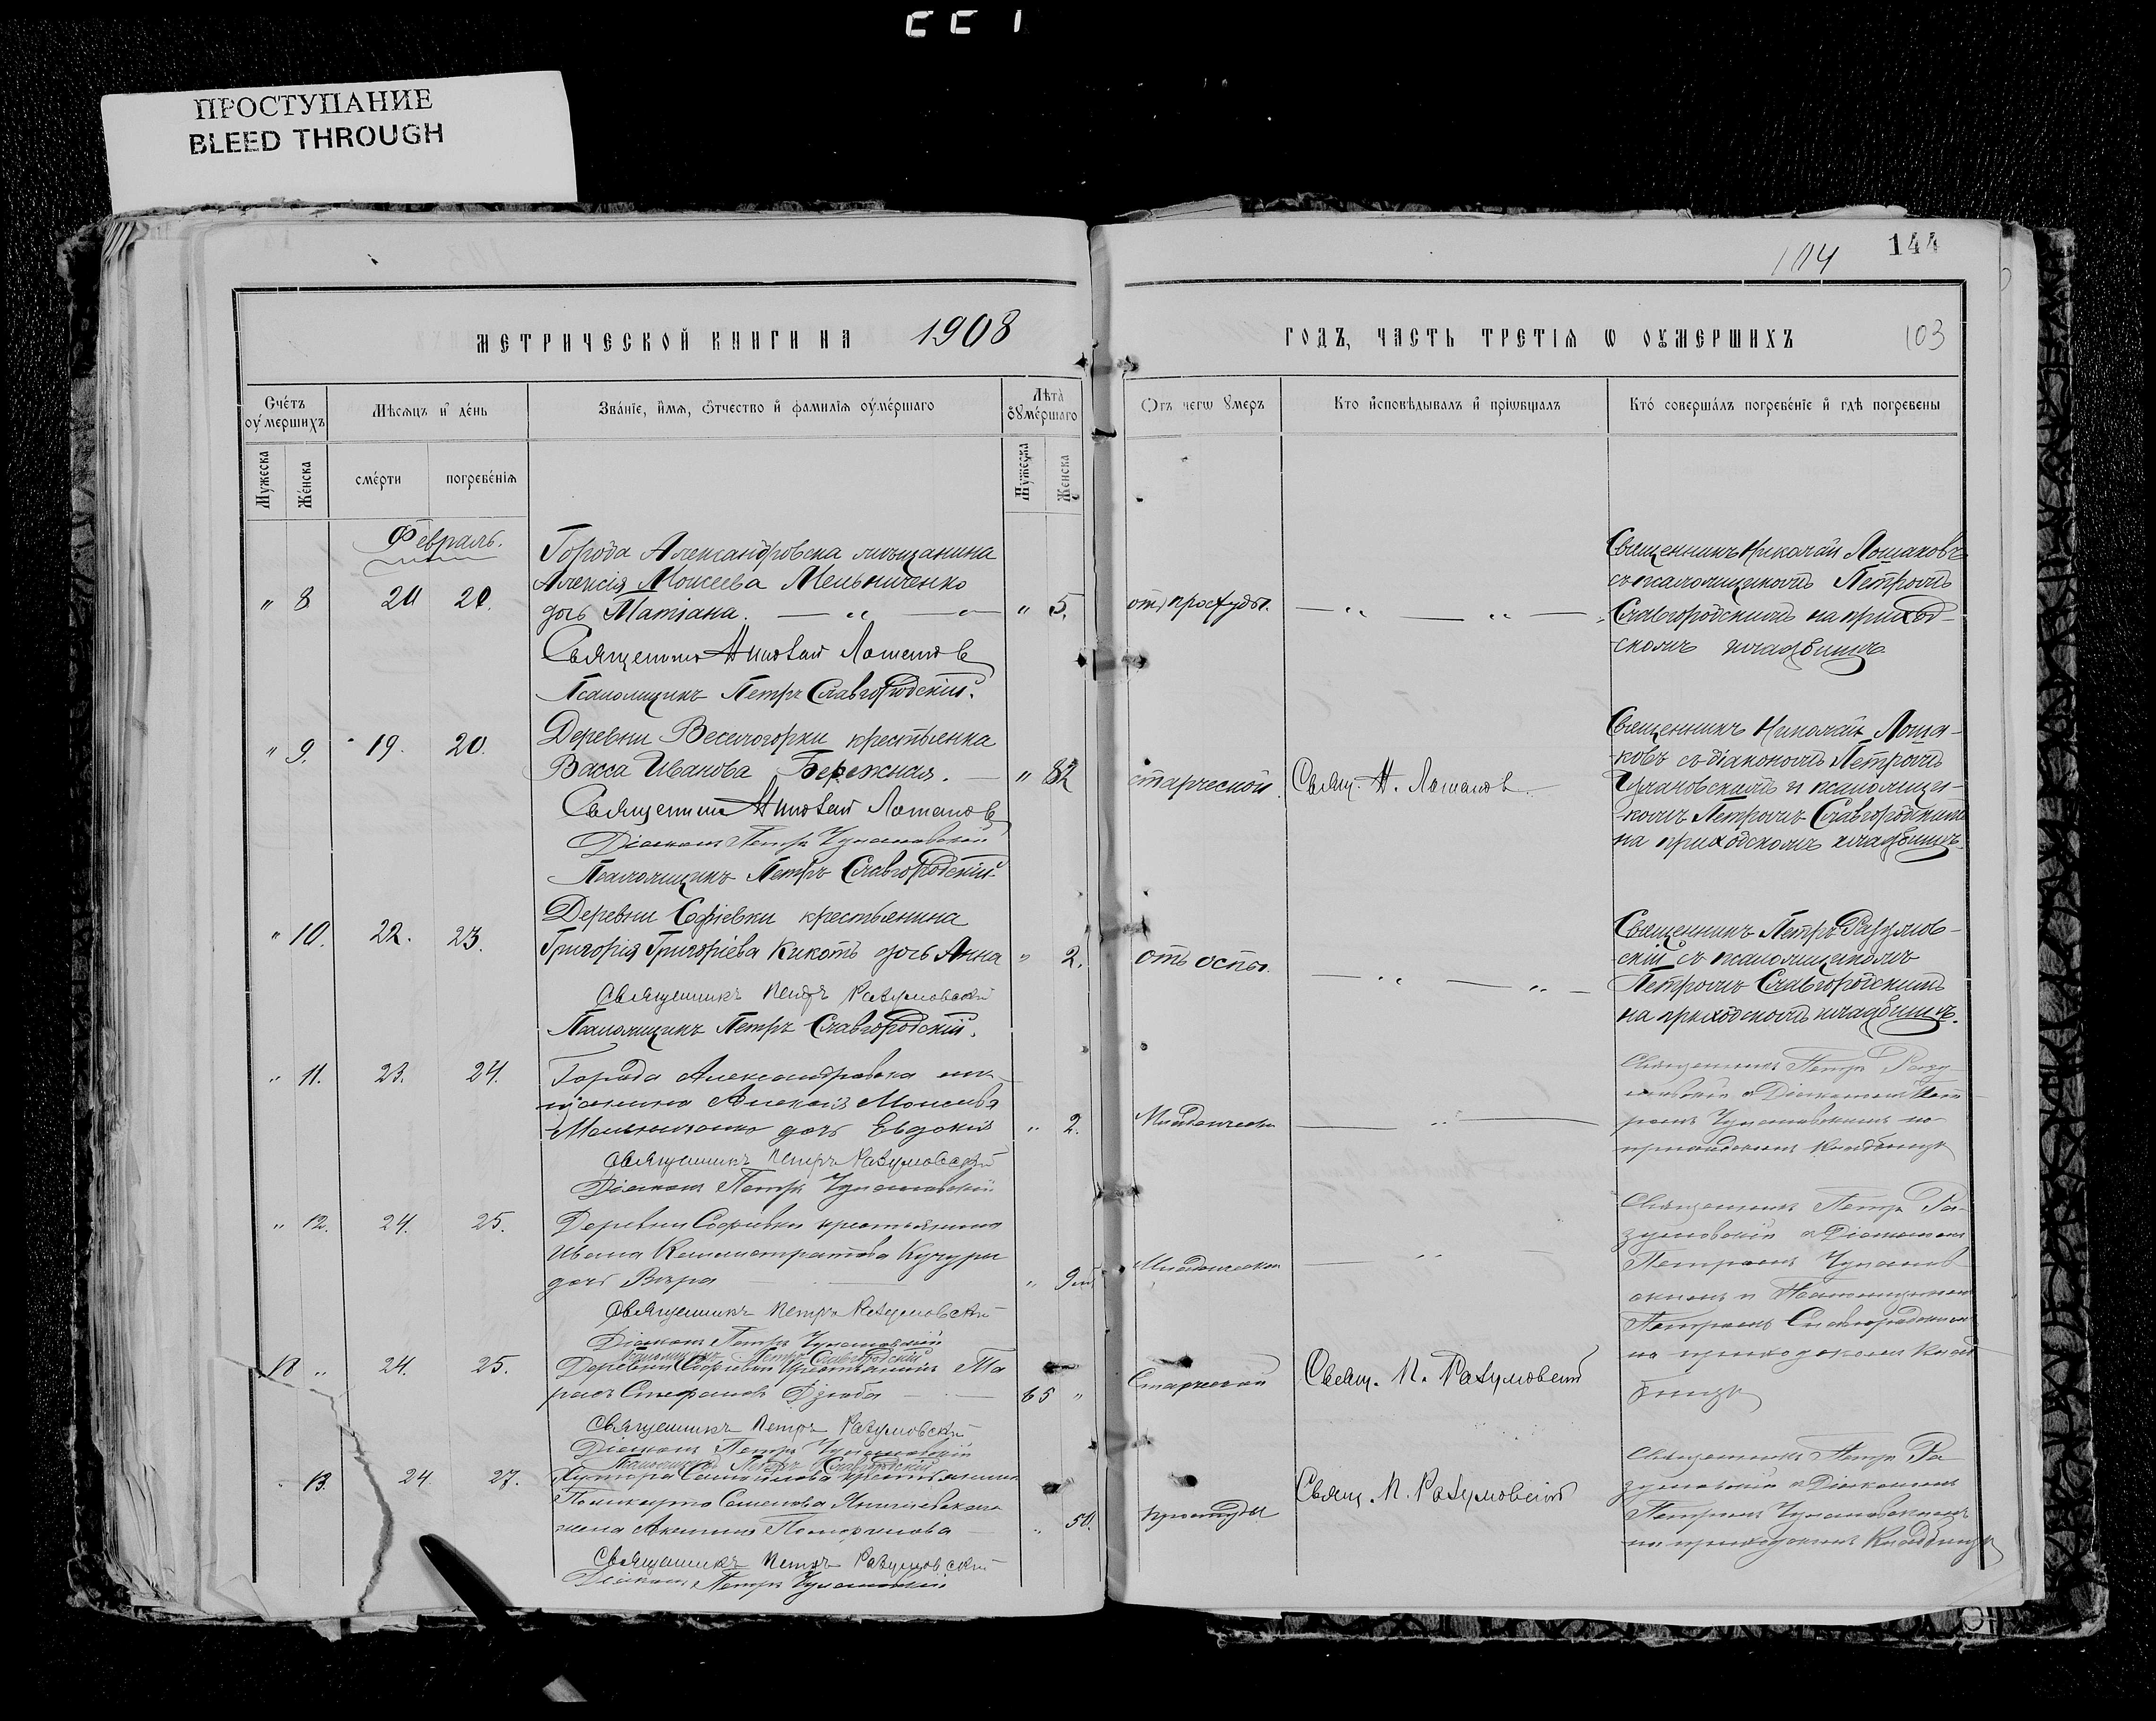 ПРОСТУПАНИЕ
BLEED THROUGH
144
104
МЕТРИЧЕСКОЙ КНИГИ НА 1908
ГОДЪ, ЧАСТЬ ТРЕТІѦ Ѡ ОУМЕРШИХЪ
103
Счетъ оумершихъ
Мѣсяцъ и день
Званіе, имя, отчество и фамилія оумершаго
Лѣта оумершаго
Отъ чегѡ умеръ
Кто исповѣдывалъ и пріѡбщалъ
Кто совершалъ погребеніе и гдѣ погребены
Мужеска
Женска
смерти
погребенія
Мужеска
Женска
Февраль.
Города Александровска мѣщанина
Алексія Моисеева Мельниченко
" 8 20.
дочь Татіана. " 5. отъ простуды.
Священникъ Николай Лошаковъ
Псаломщикъ Петръ Славгородскій.
Священникъ Николай Лошаковъ
съ псаломщикомъ Петромъ
Славгородскимъ на приход-
скомъ кладбищѣ.
" 9. 19. 20. Деревни Веселогорки крестьянка
Васса Иванова Бережная. " 82 старческой. Свящ. Н. Лошаковъ.
Священникъ Николай Лошаковъ
Діаконъ Петръ
Псаломщикъ Петръ Славгородскій.
Священникъ Николай Лоша-
ковъ съ діакономъ Петромъ
и псаломщи-
комъ Петромъ Славгородскимъ
на приходскомъ кладбищѣ.
" 10. 22. 23. Деревни Софіевки крестьянина
Григорія Григоріева Кикоть дочь Анна " 2. отъ оспы.
Священникъ Петръ Разумовскій
Псаломщикъ Петръ Славгородскій.
Священникъ Петръ Разумов-
скій съ псаломщикомъ
Петромъ Славгородскимъ
на приходскомъ кладбищѣ.
" 11. 23. 24. Города Александровска мѣ-
щанина Алексія Моисеева
Мельниченко дочь Евдокія " 2. Младенческой
Священникъ Петръ Разумовскій
Діаконъ Петръ
Священникъ Петръ Разу-
мовскій съ Діакономъ Пет-
ромъ на
приходскомъ кладбищѣ
" 12. 24. 25. Деревни Софіевки крестьянина
Ивана Каллистратова Кучуры
дочь Вѣра " 9 м. Младенческой
Священникъ Петръ Разумовскій
Діаконъ Петръ
Псаломщикъ Петръ Славгородскій
Священникъ Петръ Ра-
зумовскій съ Діакономъ
Петромъ
и Псаломщикомъ
Петромъ Славгородскимъ
на приходскомъ клад-
бищѣ
10 " 24. 25. Деревни Софіевки крестьянинъ Та-
расъ Стефановъ Дзюба 65 " Старческой Свящ. П. Разумовскій
Священникъ Петръ Разумовскій
Діаконъ Петръ
Псаломщикъ Петръ Славгородскій
" 13. 24 27. Хутора крестьянина
Поликарпа Семенова
жена Акилина " 50. простуды Свящ. П. Разумовскій
Священникъ Петръ Разумовскій
Діаконъ Петръ
Священникъ Петръ Ра-
зумовскій съ Діакономъ
Петромъ
на приходскомъ Кладбищѣ